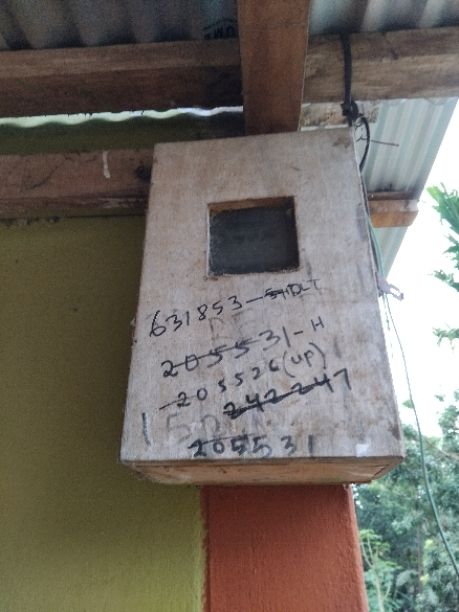 631853-SHDLT
205531-H
205526(UP)
242247
205531